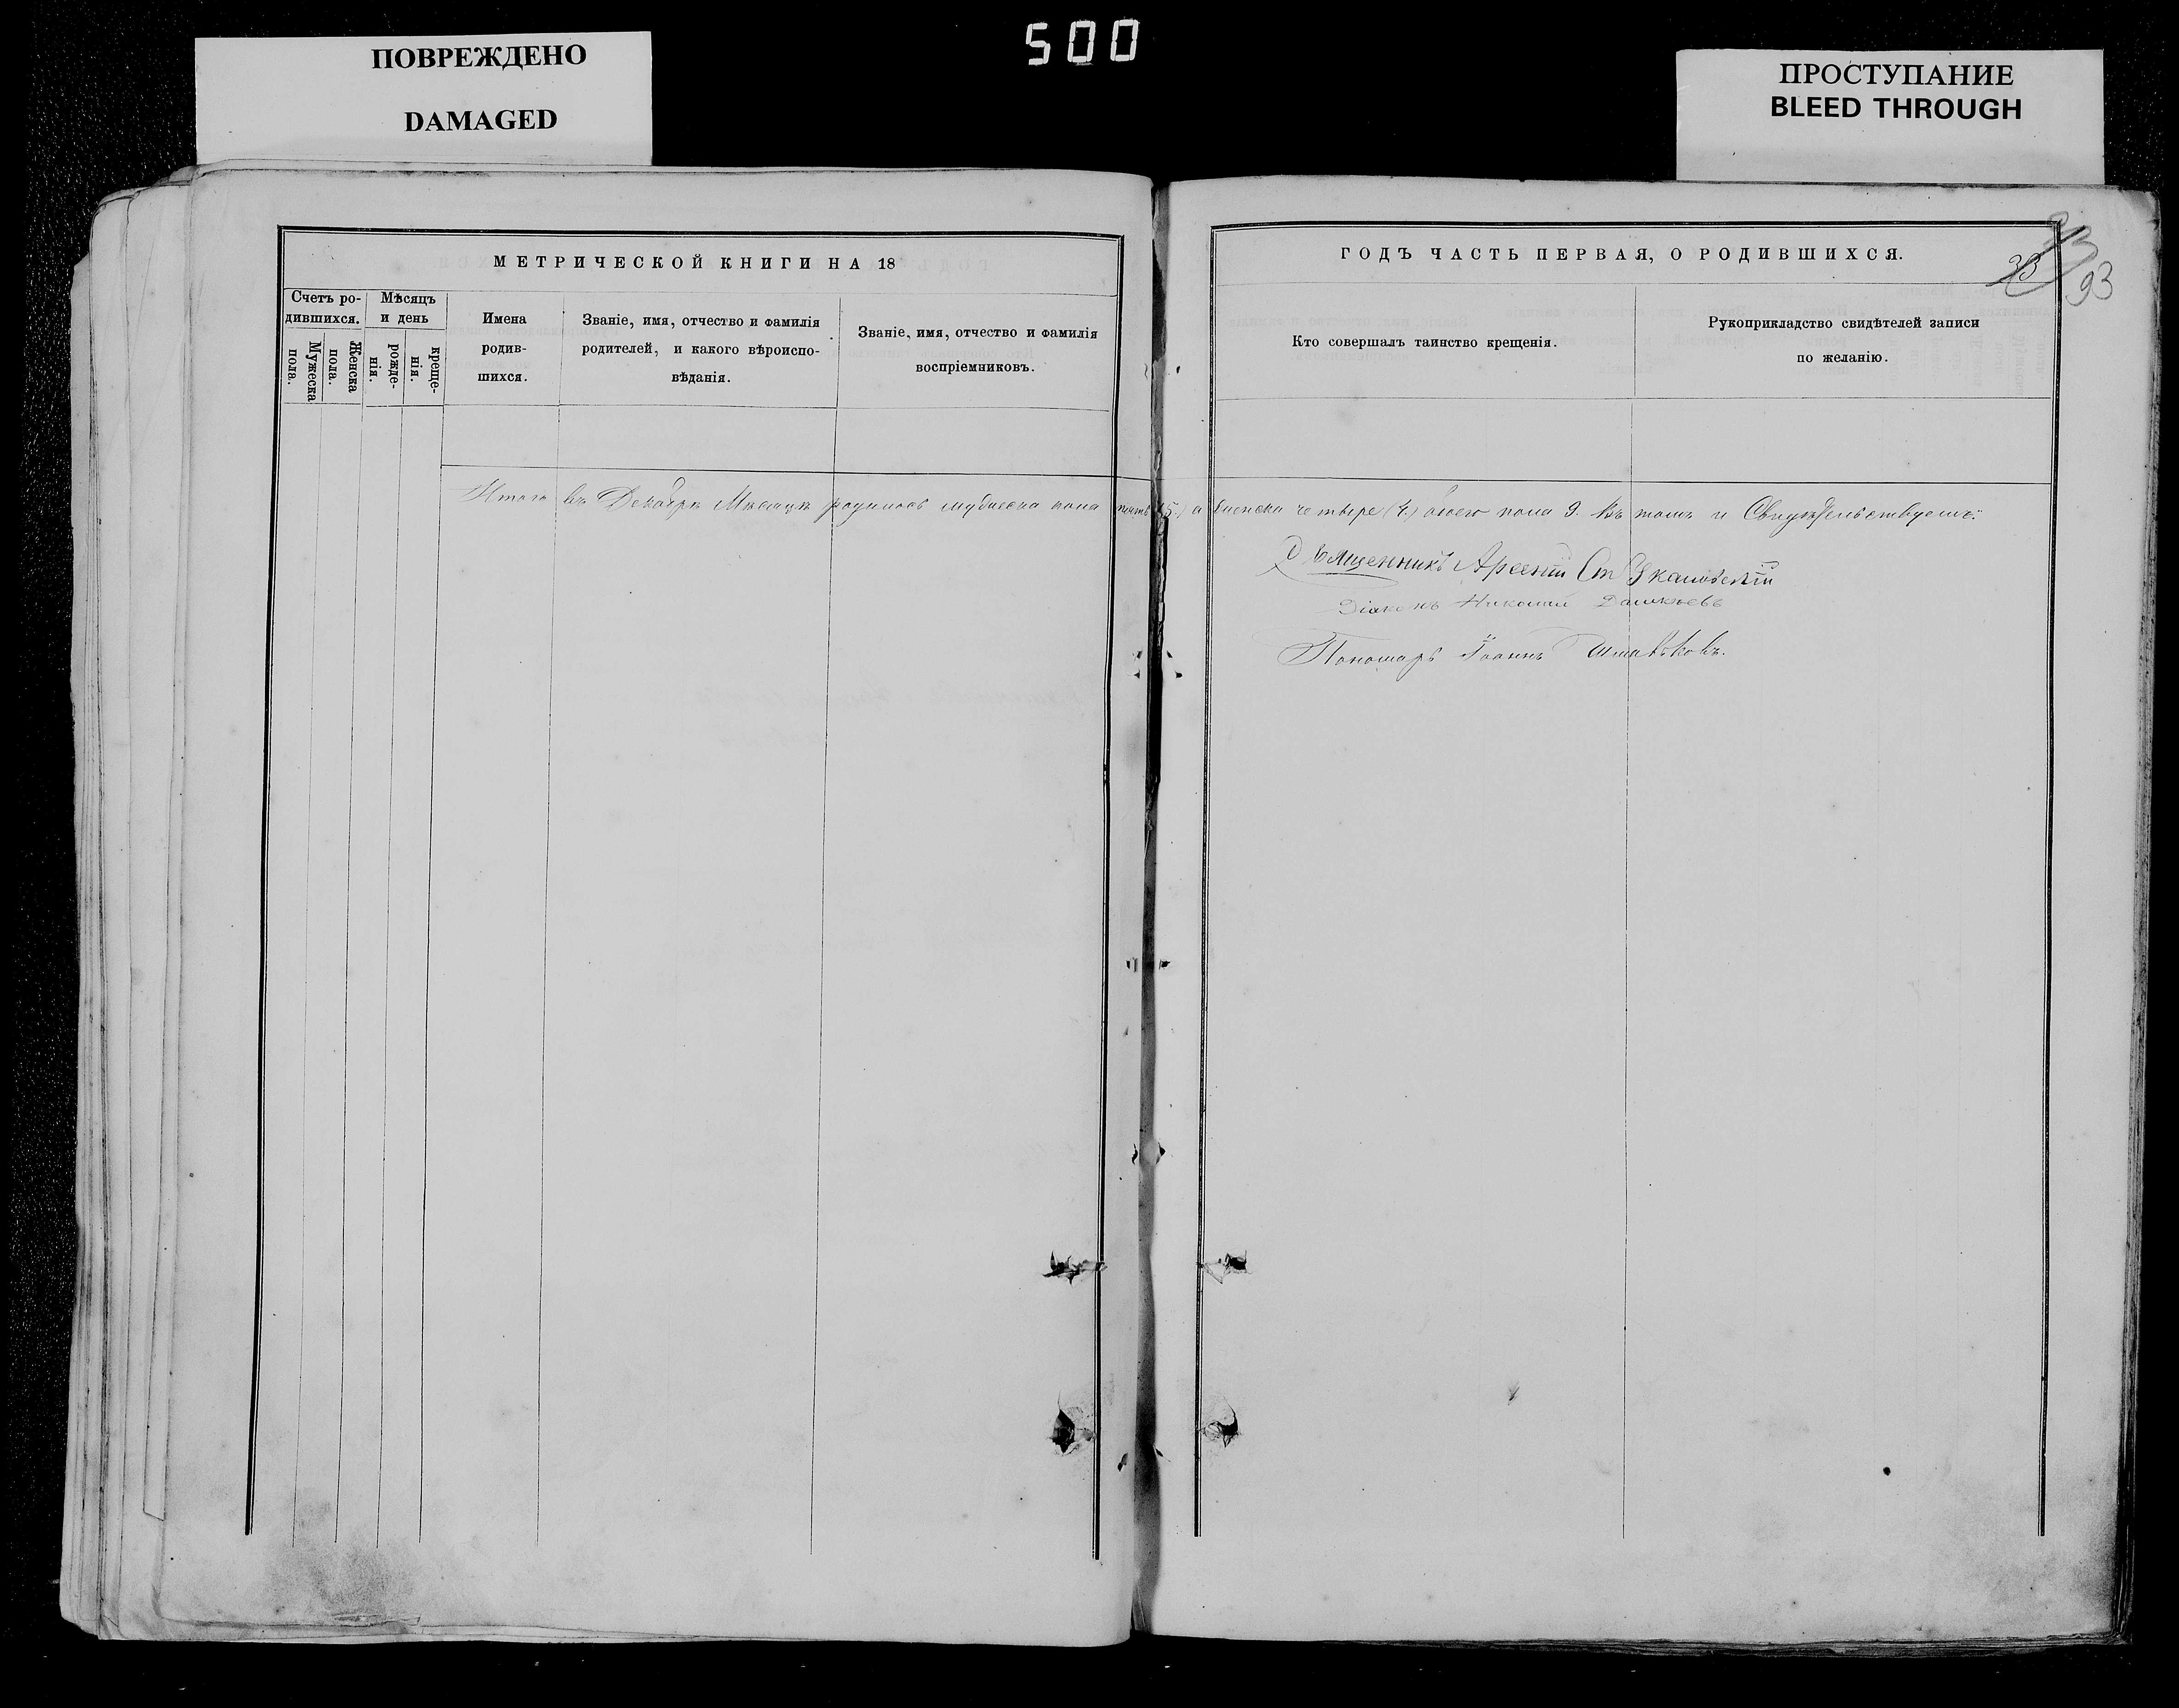 500
ПОВРЕЖДЕНО
DAMAGED
ПРОСТУПАНИЕ
BLEED THROUGH
МЕТРИЧЕСКОЙ КНИГИ НА 18
Счетъ ро-
дившихся.
Мужеска
пола.
Женска
пола.
Мѣсяцъ
и день
рожде-
нія.
креще-
нія.
Имена
родив-
шихся.
Званіе, имя, отчество и фамилія
родителей, и какого вѣроиспо-
вѣданія.
Званіе, имя, отчество и фамилія
воспріемниковъ.
ГОДЪ ЧАСТЬ ПЕРВАЯ, О РОДИВШИХСЯ.
93
Кто совершалъ таинство крещенія.
Рукоприкладство свидѣтелей записи
по желанію.
Итого въ Декабрѣ Мѣсяцѣ родилось мужеска пола пять (5.) а женска четыре (4.) обоего пола 9. Въ томъ и Свидѣтельствуемъ:
Священникъ Арсеній
Діаконъ Николай
Пономарь Іоаннъ